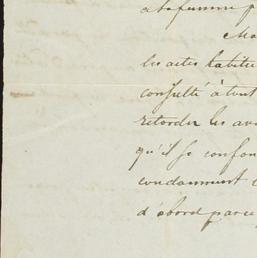 a la femme p
Ma
les actes habitu
consulté à tout
retarder les av
qu'il se confon
condamnent c
d'abord parce q